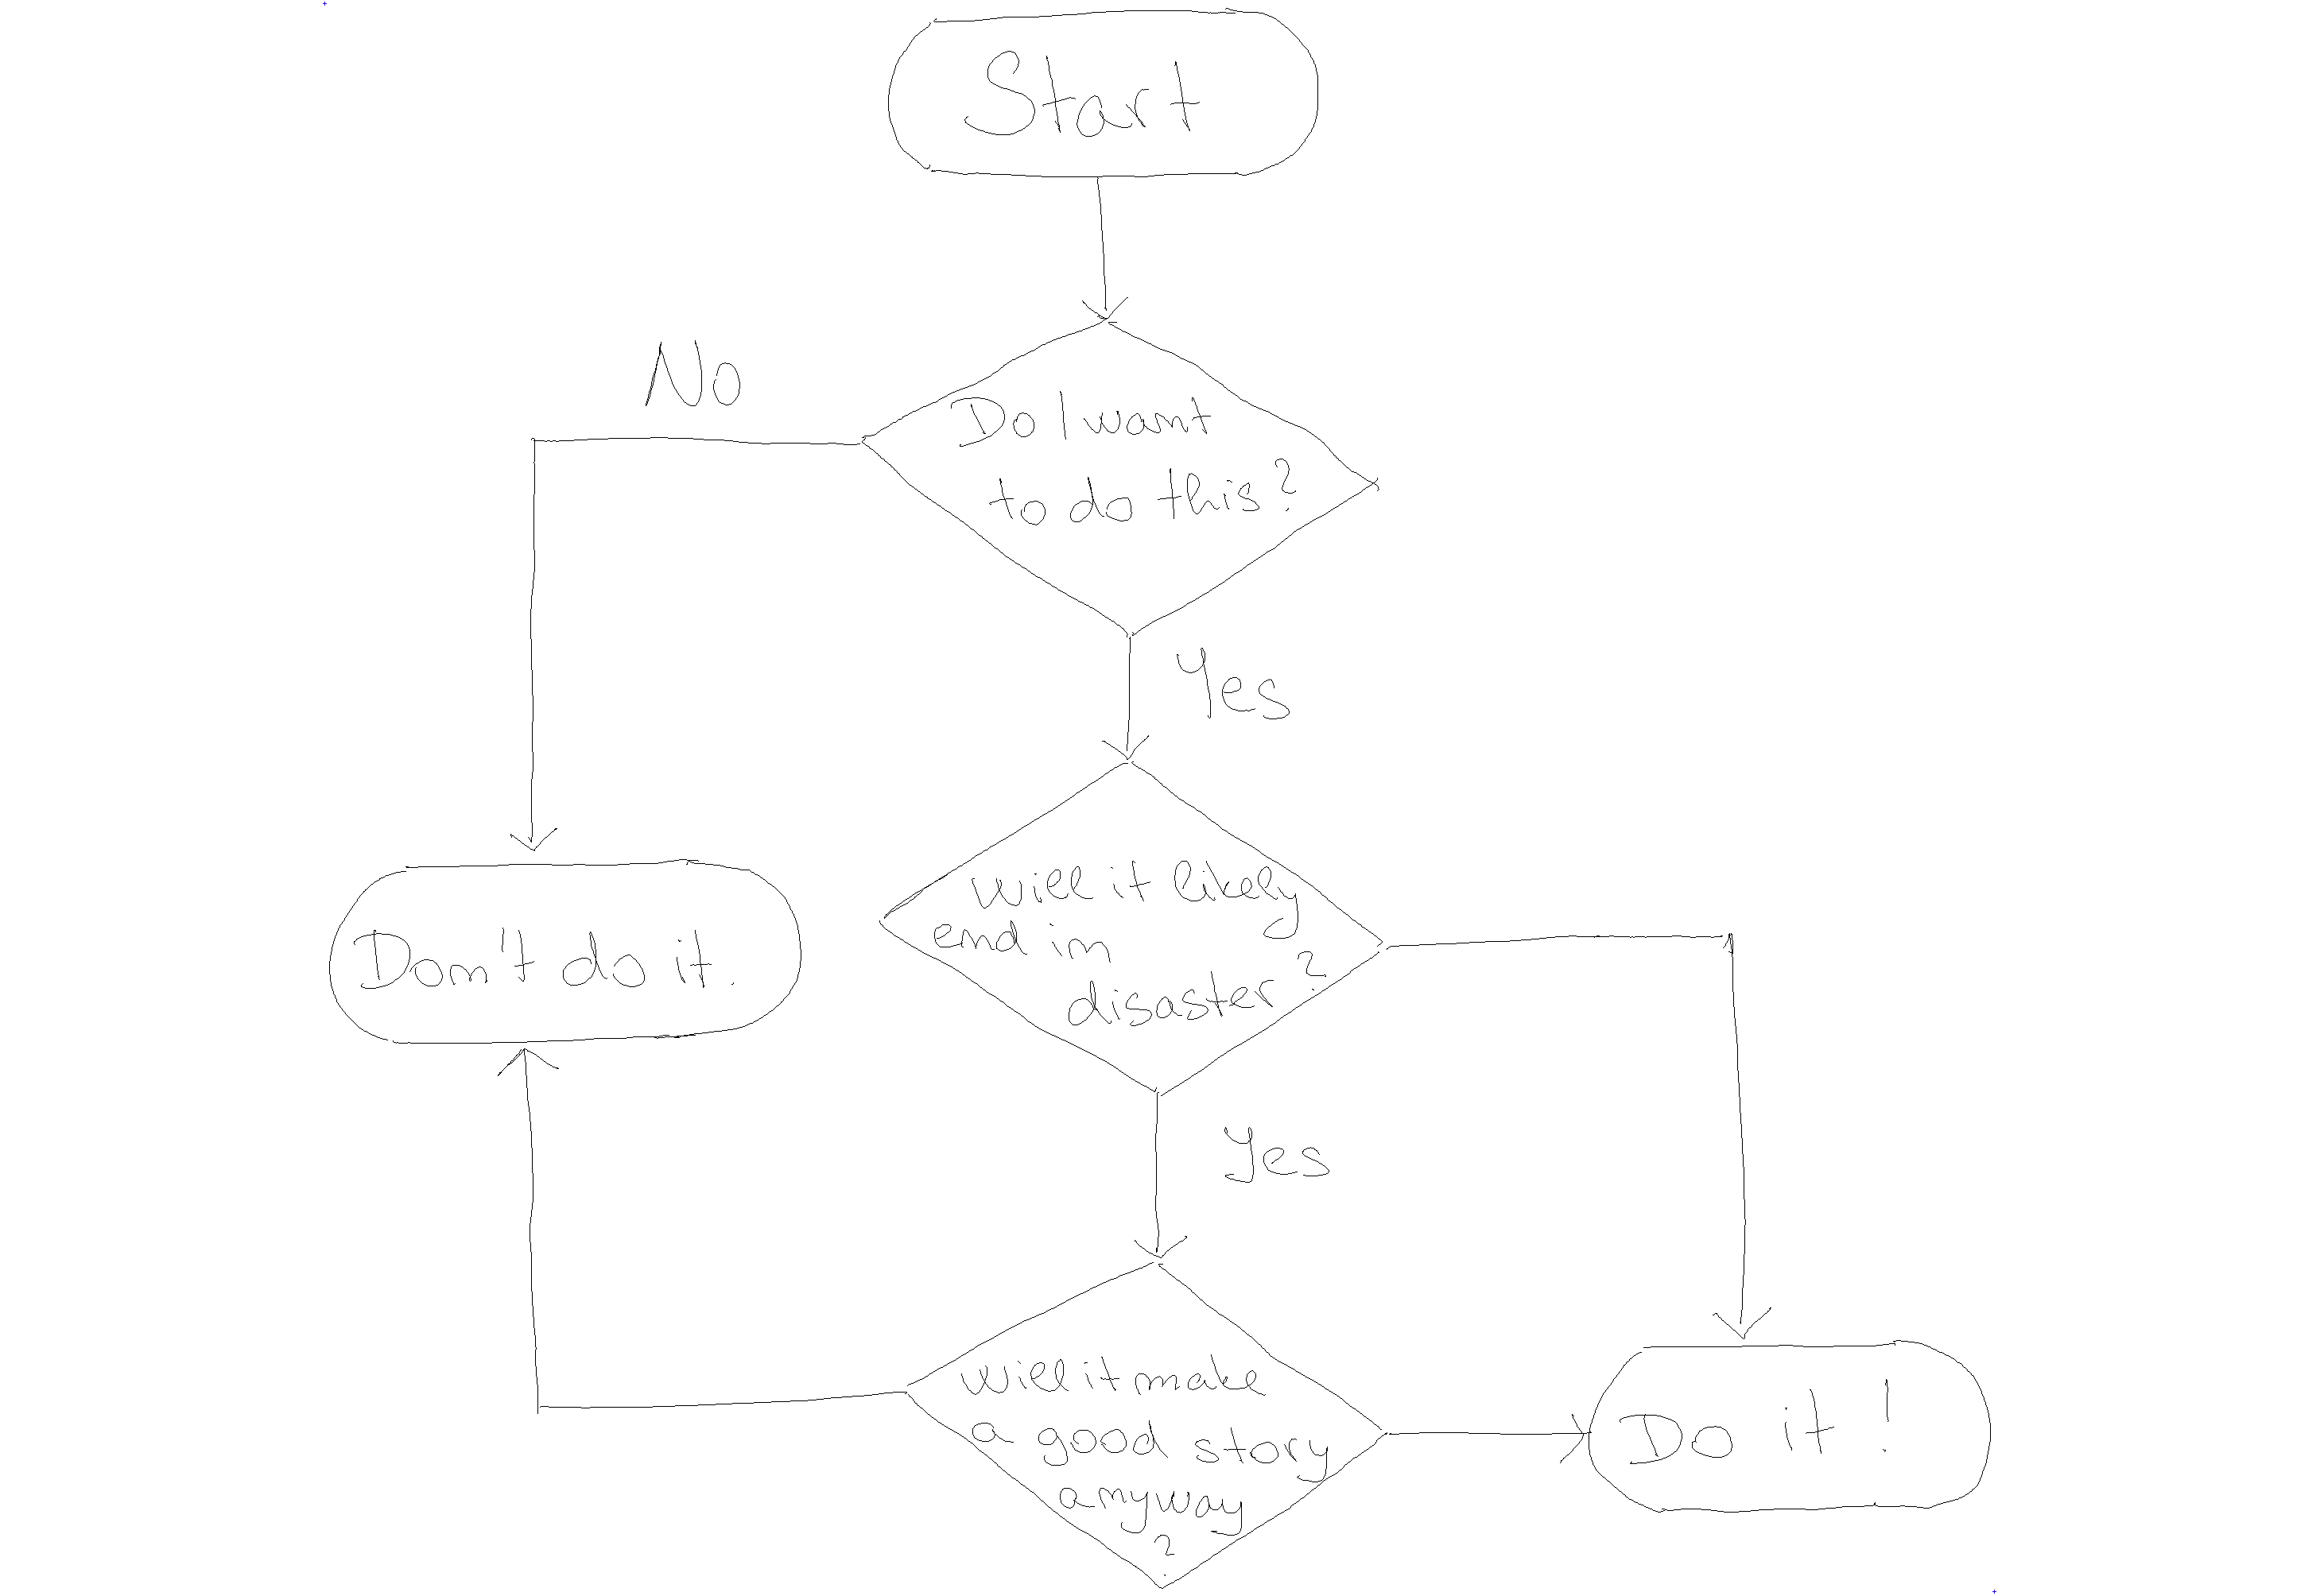 Start
No
Do I want
to do this?
Yes
Will it likely
end in
disaster?
Don't do it.
Yes
Will it make
a good story
anyway
?
Do it!